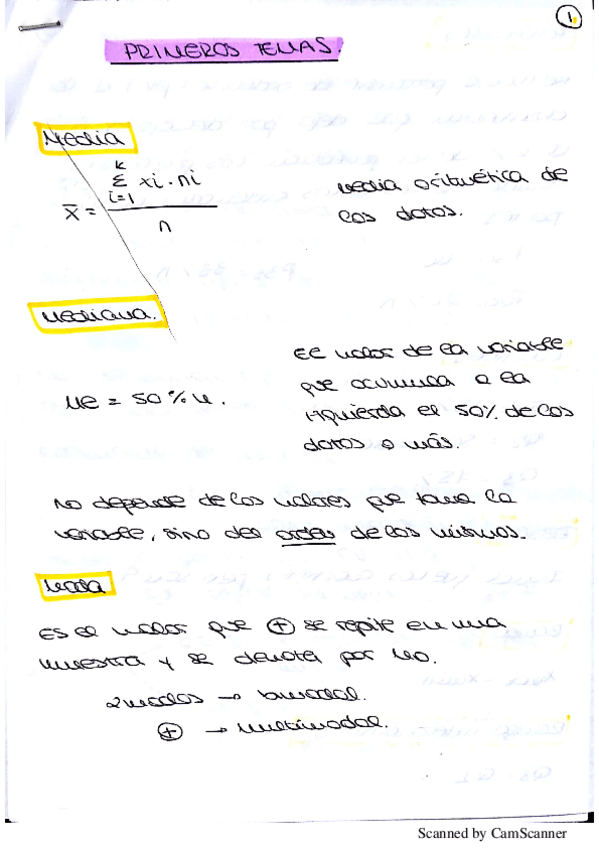 1
PRIMEROS TEMAS.
Media
k
Σ xi·ni
i=1
x̄ =
n
media aritmética de
los datos.
Mediana.
El valor de la variable
que acumula a la
izquierda el 50% de los
datos o más.
Me = 50% n.
No depende de los valores que toma la
variable, sino del orden de los mismos.
Moda
Es el valor que ⊕ se repite en una
muestra y se denota por Mo.
2 modas → bimodal.
⊕ → multimodal.
Scanned by CamScanner